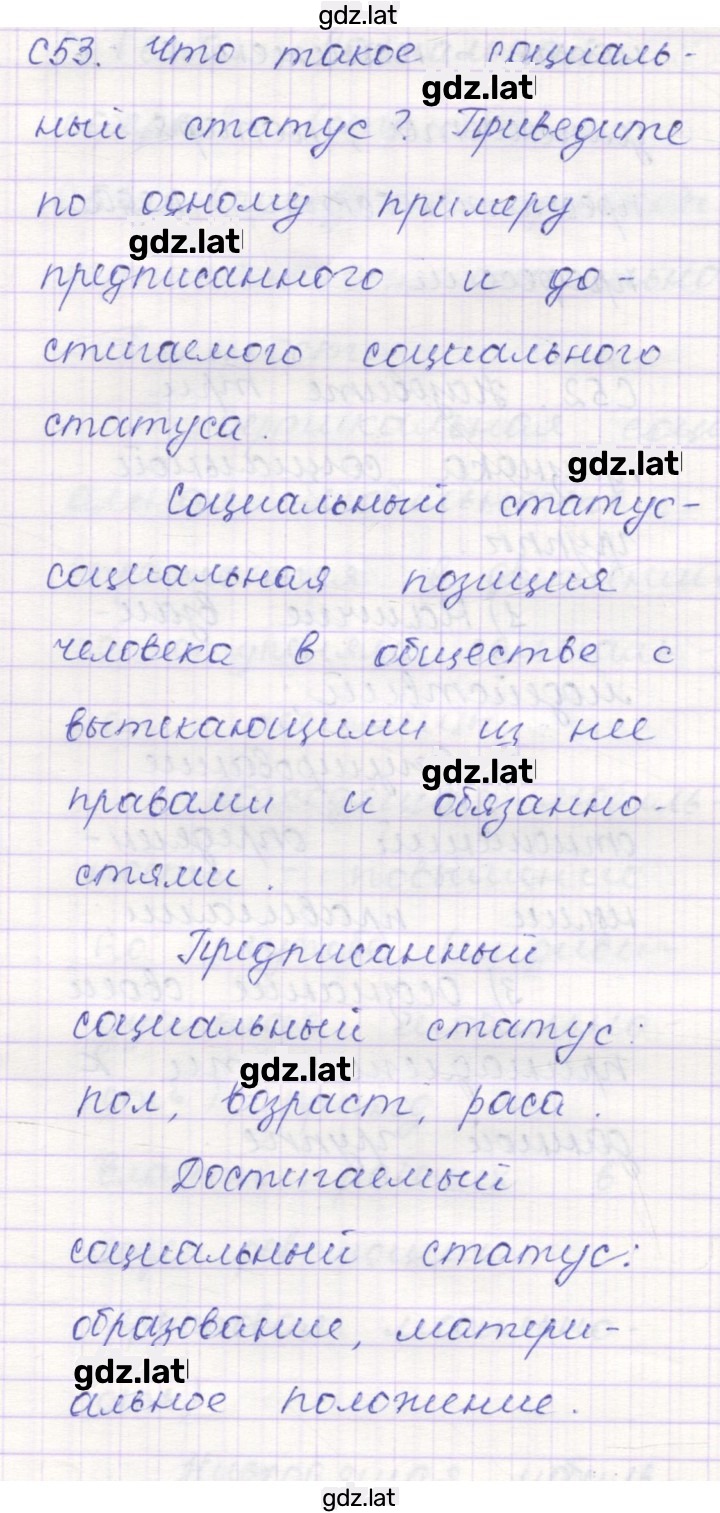 gdz.lat
С53. Что такое социаль-
gdz.lat
ный статус? Приведите
по одному примеру
gdz.lat
предписанного и до-
стигаемого социального
статуса.
gdz.lat
Социальный статус-
социальная позиция
человека в обществе с
вытекающими из нее
gdz.lat
правами и обязанно-
стями.
Предписанный
социальный статус:
gdz.lat
пол, возраст, раса.
Достигаемый
социальный статус:
образование, матери-
gdz.lat
альное положение.
gdz.lat